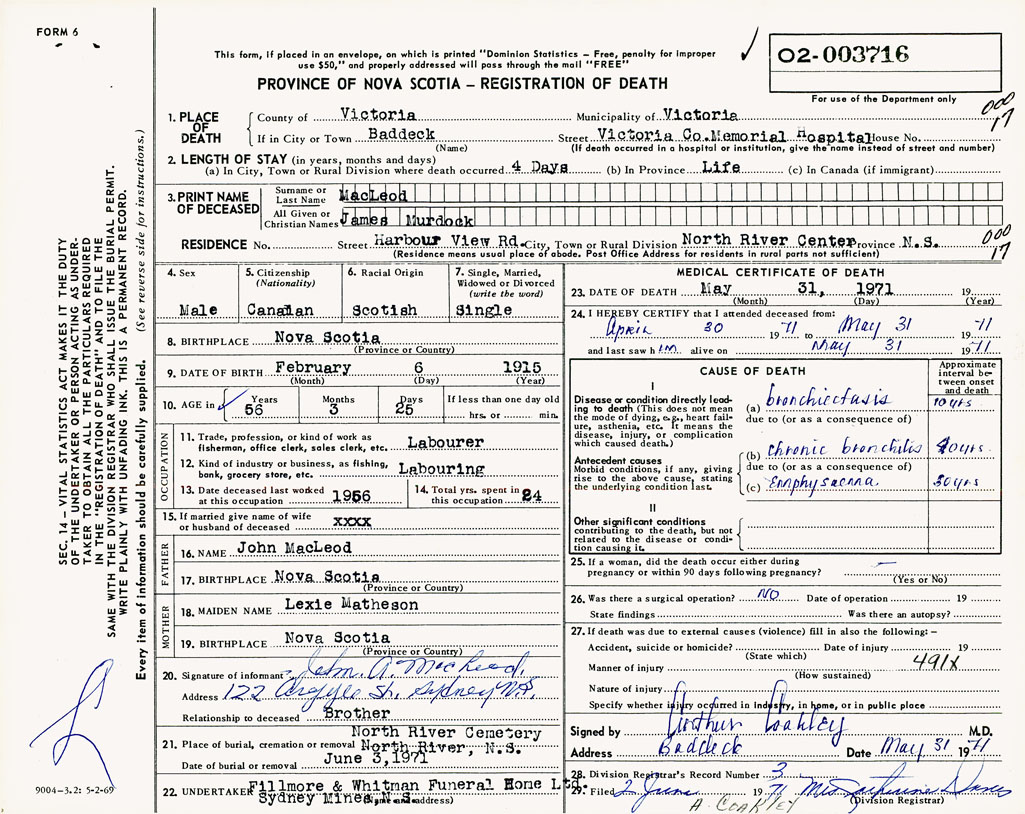 FORM 6
This form, if placed in an envelope, on which is printed "Dominion Statistics – Free, penalty for improper
use $50," and properly addressed will pass through the mail "FREE"
PROVINCE OF NOVA SCOTIA – REGISTRATION OF DEATH
02-003716
For use of the Department only
000
17
1. PLACE OF DEATH
County of Victoria Municipality of Victoria
If in City or Town Baddeck Street Victoria Co.Memorial Hospital House No.
(Name) (If death occurred in a hospital or institution, give the name instead of street and number)
2. LENGTH OF STAY (in years, months and days)
(a) In City, Town or Rural Division where death occurred 4 Days (b) In Province Life (c) In Canada (if immigrant)
3. PRINT NAME OF DECEASED
Surname or Last Name MacLeod
All Given or Christian Names James Murdock
RESIDENCE No. Street Harbour View Rd. City, Town or Rural Division North River Center Province N.S.
(Residence means usual place of abode. Post Office Address for residents in rural parts not sufficient)
000
17
4. Sex
Male
5. Citizenship
(Nationality)
Canadian
6. Racial Origin
Scotish
7. Single, Married,
Widowed or Divorced
(write the word)
Single
8. BIRTHPLACE Nova Scotia
(Province or Country)
9. DATE OF BIRTH February 6 1915
(Month) (Day) (Year)
10. AGE in Years Months Days If less than one day old
56 3 25 hrs. or min.
OCCUPATION
11. Trade, profession, or kind of work as
fisherman, office clerk, sales clerk, etc. Labourer
12. Kind of industry or business, as fishing,
bank, grocery store, etc. Labouring
13. Date deceased last worked
at this occupation 1956
14. Total yrs. spent in
this occupation 24
15. If married give name of wife
or husband of deceased xxxx
FATHER
16. NAME John MacLeod
17. BIRTHPLACE Nova Scotia
(Province or Country)
MOTHER
18. MAIDEN NAME Lexie Matheson
19. BIRTHPLACE Nova Scotia
(Province or Country)
20. Signature of informant John A. MacLeod.
Address 122 Argyle St. Sydney N.S.
Relationship to deceased Brother
North River Cemetery
21. Place of burial, cremation or removal North River, N.S.
Date of burial or removal June 3,1971
22. UNDERTAKER Fillmore & Whitman Funeral Home Ltd.
Sydney Mines N.S.
(Name and address)
MEDICAL CERTIFICATE OF DEATH
23. DATE OF DEATH May 31, 1971 19
(Month) (Day) (Year)
24. I HEREBY CERTIFY that I attended deceased from:
April 30 1971 to May 31 1971
and last saw him alive on May 31 1971
CAUSE OF DEATH
Approximate
interval be-
tween onset
and death
I
Disease or condition directly lead-
ing to death (This does not mean
the mode of dying, e.g., heart fail-
ure, asthenia, etc. It means the
disease, injury, or complication
which caused death.)
(a) bronchiectasis 10 yrs
due to (or as a consequence of)
Antecedent causes
Morbid conditions, if any, giving
rise to the above cause, stating
the underlying condition last.
(b) chronic bronchitis yrs
due to (or as a consequence of)
(c) Emphysaema. yrs
II
Other significant conditions
contributing to the death, but not
related to the disease or condi-
tion causing it.
25. If a woman, did the death occur either during
pregnancy or within 90 days following pregnancy?
(Yes or No)
26. Was there a surgical operation? NO Date of operation 19
State findings Was there an autopsy?
27. If death was due to external causes (violence) fill in also the following: –
Accident, suicide or homicide? Date of injury 19
(State which)
491X
Manner of injury
(How sustained)
Nature of injury
Specify whether injury occurred in industry, in home, or in public place
Signed by Arthur Coakley M.D.
Address Baddeck Date May 31 1971
28. Division Registrar's Record Number 3
29. Filed 2 June 1971
(Division Registrar)
A. COAKLEY
SEC. 14 – VITAL STATISTICS ACT MAKES IT THE DUTY
OF THE UNDERTAKER OR PERSON ACTING AS UNDER-
TAKER TO OBTAIN ALL THE PARTICULARS REQUIRED
IN THE "REGISTRATION OF DEATH" AND TO FILE THE
SAME WITH THE DIVISION REGISTRAR WHO SHALL ISSUE THE BURIAL PERMIT.
WRITE PLAINLY WITH UNFADING INK. THIS IS A PERMANENT RECORD.
Every item of information should be carefully supplied. (See reverse side for instructions.)
9004-3.2: 5-2-69